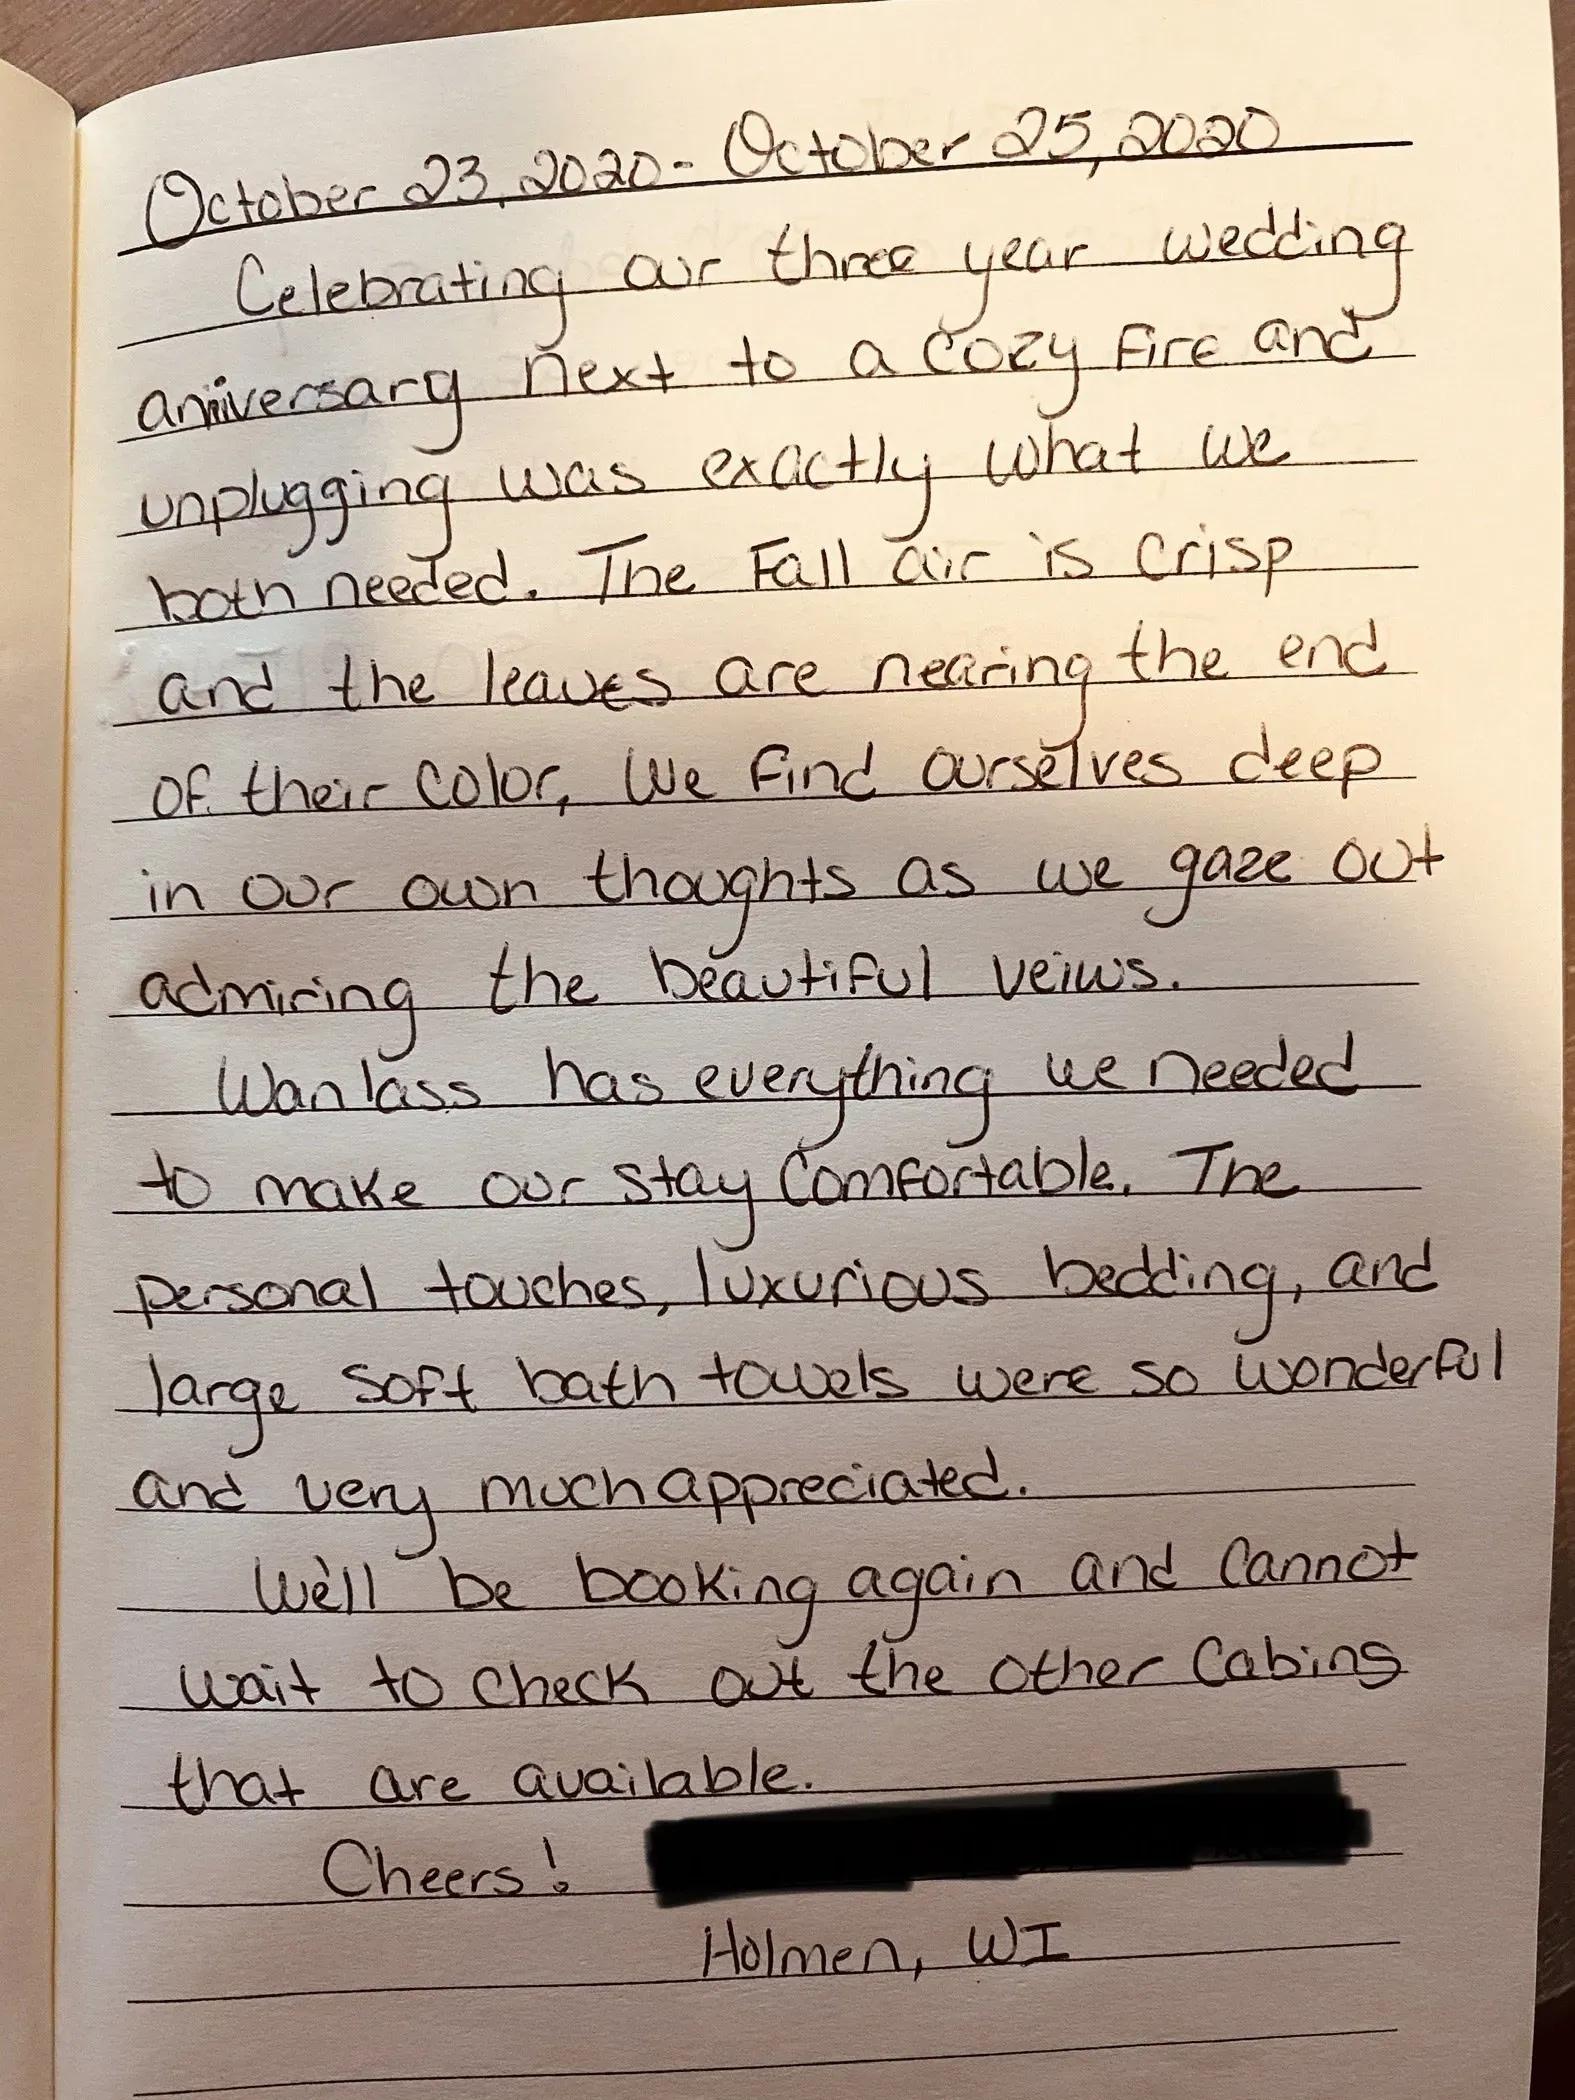 October 23, 2020 - October 25, 2020
Celebrating our three year wedding
aniversary next to a cozy fire and
unplugging was exactly what we
both needed. The Fall air is crisp
and the leaves are nearing the end
of their color, We find ourselves deep
in our own thoughts as we gaze out
admiring the beautiful veiws.
Wanlass has everything we needed
to make our stay comfortable. The
personal touches, luxurious bedding, and
large soft bath towels were so wonderful
and very much appreciated.
We'll be booking again and cannot
wait to check out the other cabins
that are available.
Cheers!
Holmen, WI